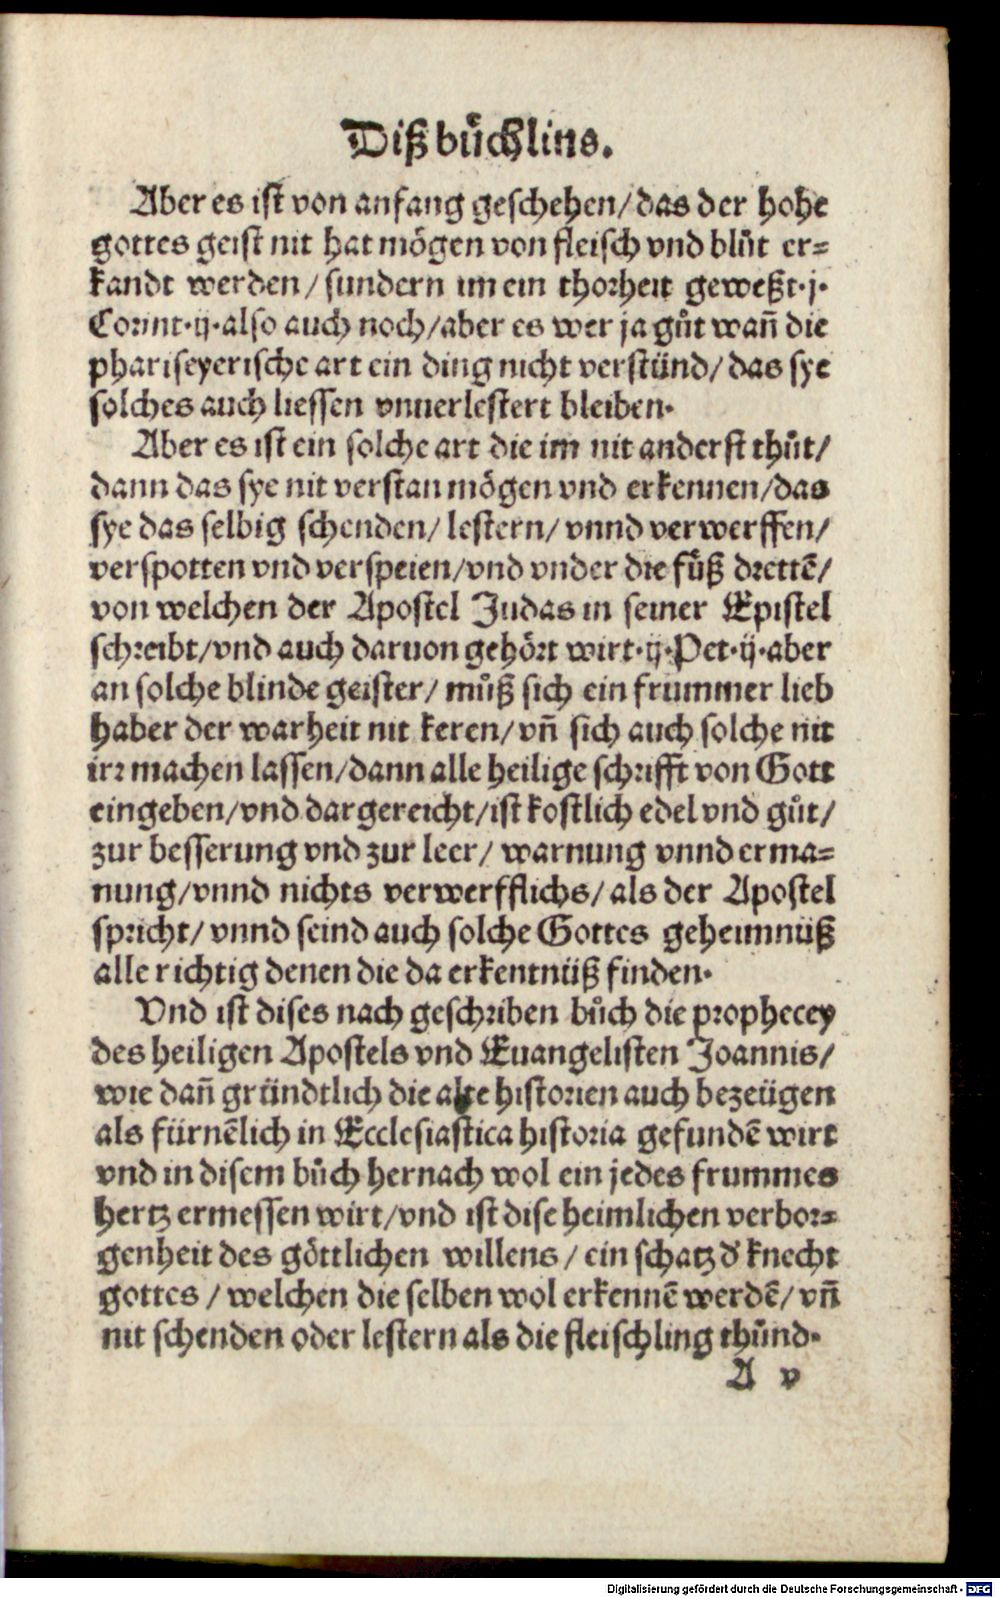 Diß bůchlins.
Aber es ist von anfang geschehen/ das der hohe
gottes geist nit hat mögen von fleisch vnd blůt er=
kandt werden/ sundern im ein thorheit geweßt·j·
Corint·ij·also auch noch/aber es wer ja gůt wañ die
phariseyerische art ein ding nicht verstünd/ das sye
solches auch liessen vnuerlestert bleiben·
Aber es ist ein solche art die im nit anderst thůt/
dann das sye nit verstan mögen vnd erkennen/das
sye das selbig schenden/ lestern/ vnnd verwerffen/
verspotten vnd verspeien/vnd vnder die fůß drettē/
von welchen der Apostel Judas in seiner Epistel
schreibt/vnd auch daruon gehört wirt·ij·Pet·ij·aber
an solche blinde geister/ můß sich ein frummer lieb
haber der warheit nit keren/ vñ sich auch solche nit
irr machen lassen/dann alle heilige schrifft von Gott
eingeben/vnd dargereicht/ist kostlich edel vnd gůt/
zur besserung vnd zur leer/ warnung vnnd erma=
nung/vnnd nichts verwerfflichs/ als der Apostel
spricht/ vnnd seind auch solche Gottes geheimnüß
alle richtig denen die da erkentnüß finden·
Vnd ist dises nach geschriben bůch die prophecey
des heiligen Apostels vnd Euangelisten Joannis/
wie dañ gründtlich die alte historien auch bezeügen
als fürnēlich in Ecclesiastica historia gefundē wirt
vnd in disem bůch hernach wol ein jedes frummes
hertz ermessen wirt/vnd ist dise heimlichen verbor=
genheit des göttlichen willens/ ein schatz d' knecht
gottes/ welchen die selben wol erkennē werdē/ vñ
nit schenden oder lestern als die fleischling thůnd·
A v
Digitalisierung gefördert durch die Deutsche Forschungsgemeinschaft - DFG